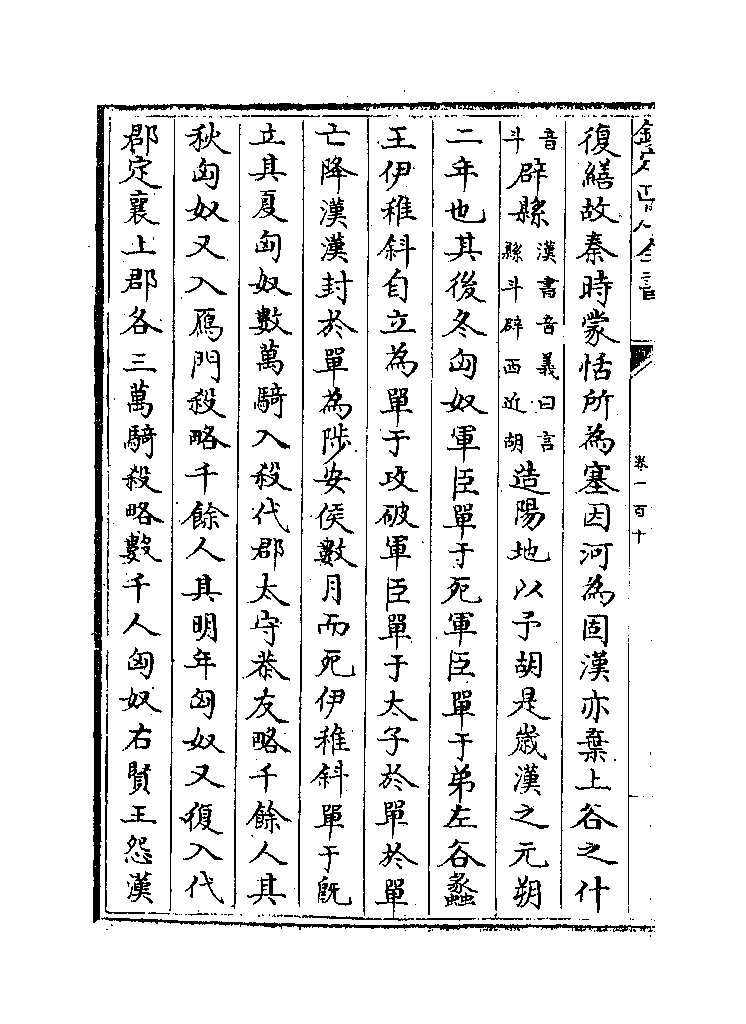 卷一百十
復繕故秦時蒙恬所為塞因河為固漢亦棄上谷之什
音斗辟縣漢書音義曰言縣斗辟西近胡造陽地以予胡是歲漢之元朔
二年也其後冬匈奴軍臣單于死軍臣單于弟左谷蠡
王伊稚斜自立為單于攻破軍臣單于太子於單於單
亡降漢漢封於單為陟安侯數月而死伊稚斜單于既
立其夏匈奴數萬騎入殺代郡太守恭友略千餘人其
秋匈奴又入鴈門殺略千餘人其明年匈奴又復入代
郡定襄上郡各三萬騎殺略數千人匈奴右賢王怨漢